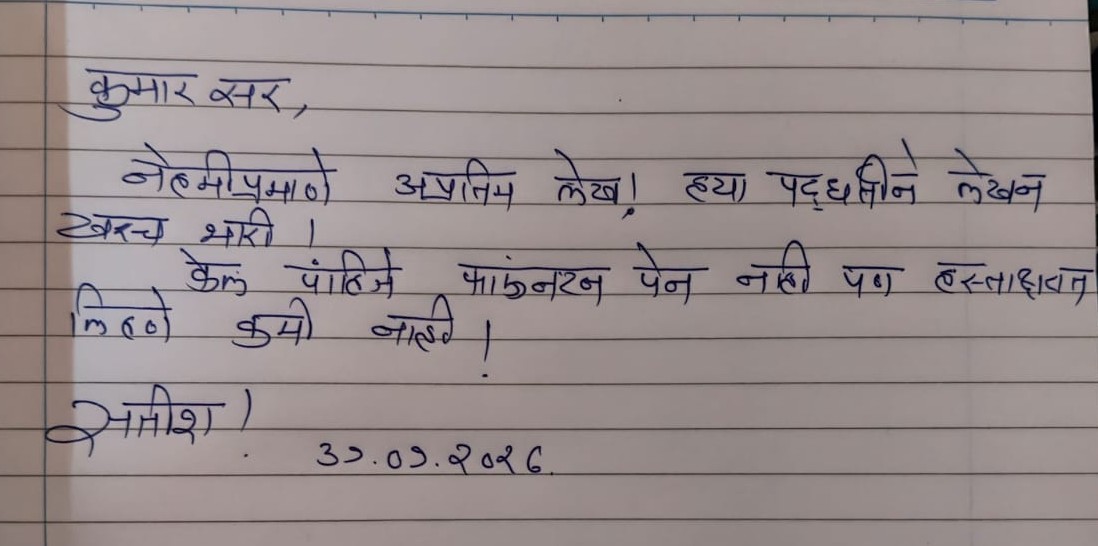 कुमार सर,
नेहमीप्रमाणे अप्रतिम लेख! ह्या पद्धतीने लेखन
खरच भारी ।
केलं पाहिजे फाऊंनटन पेन नाही पण हस्ताक्षरात
लिहणे कमी नाही !
सतीश !
३१.०१.२०२६.